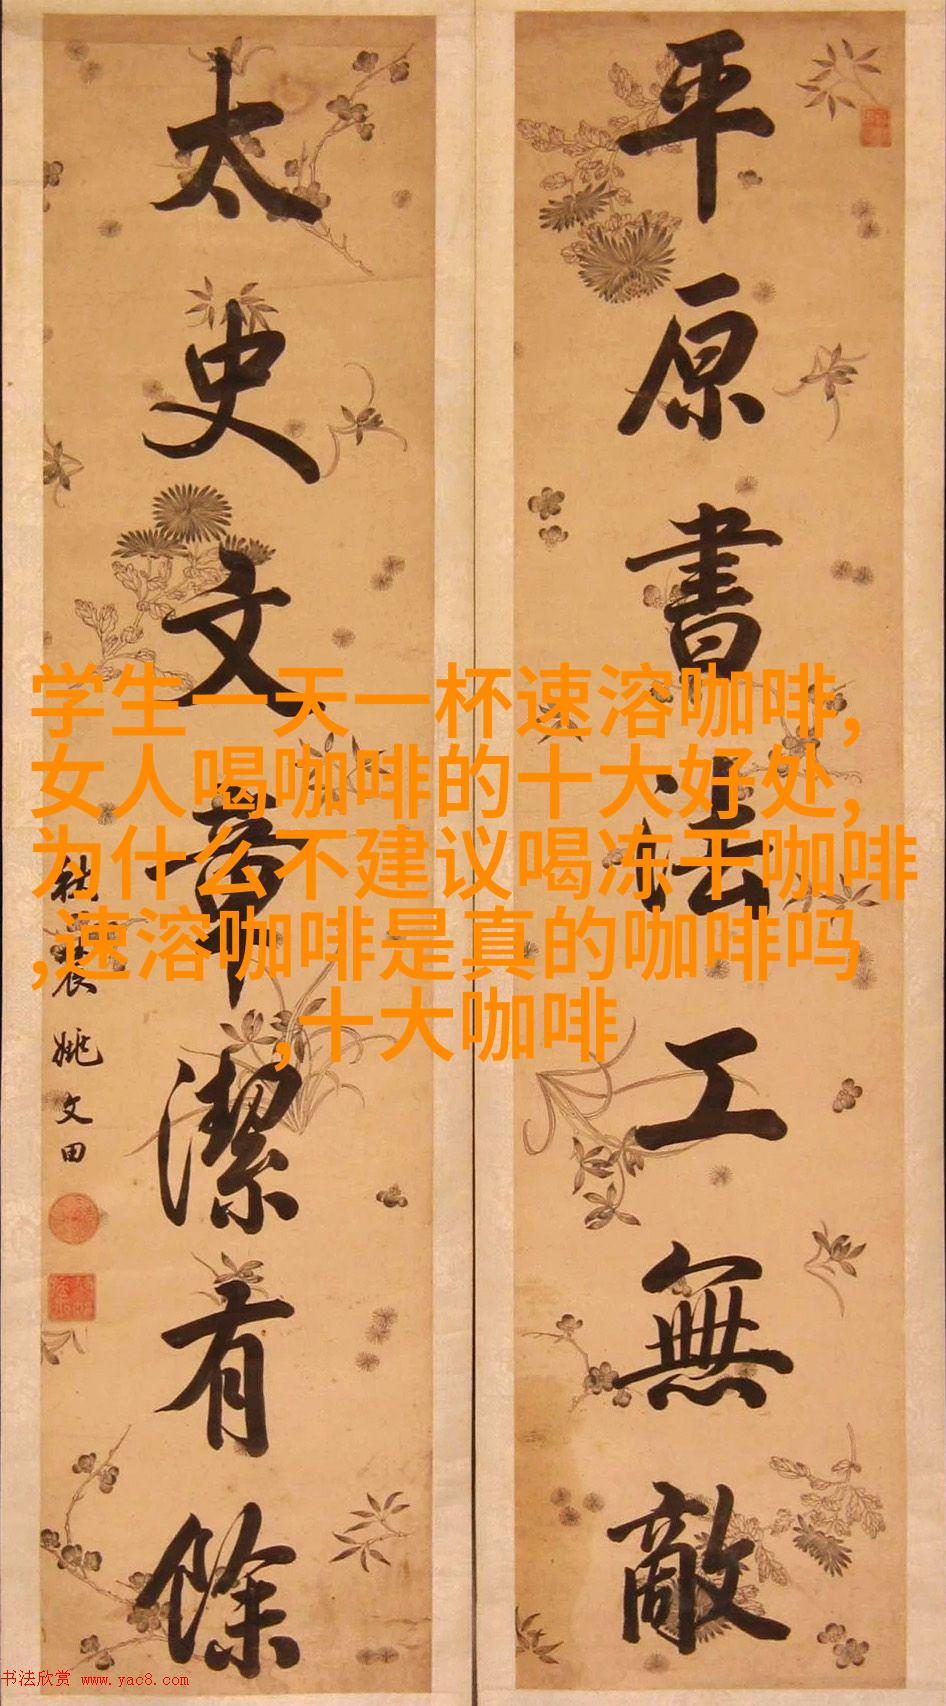 平原書法工無敵
太史文章潔有餘
秋農姚文田
学生一天一杯速溶咖啡,
女人喝咖啡的十大好处,
为什么不建议喝冻干咖啡
,速溶咖啡是真的咖啡吗
,十大咖啡
书法欣赏 www.yac8.com